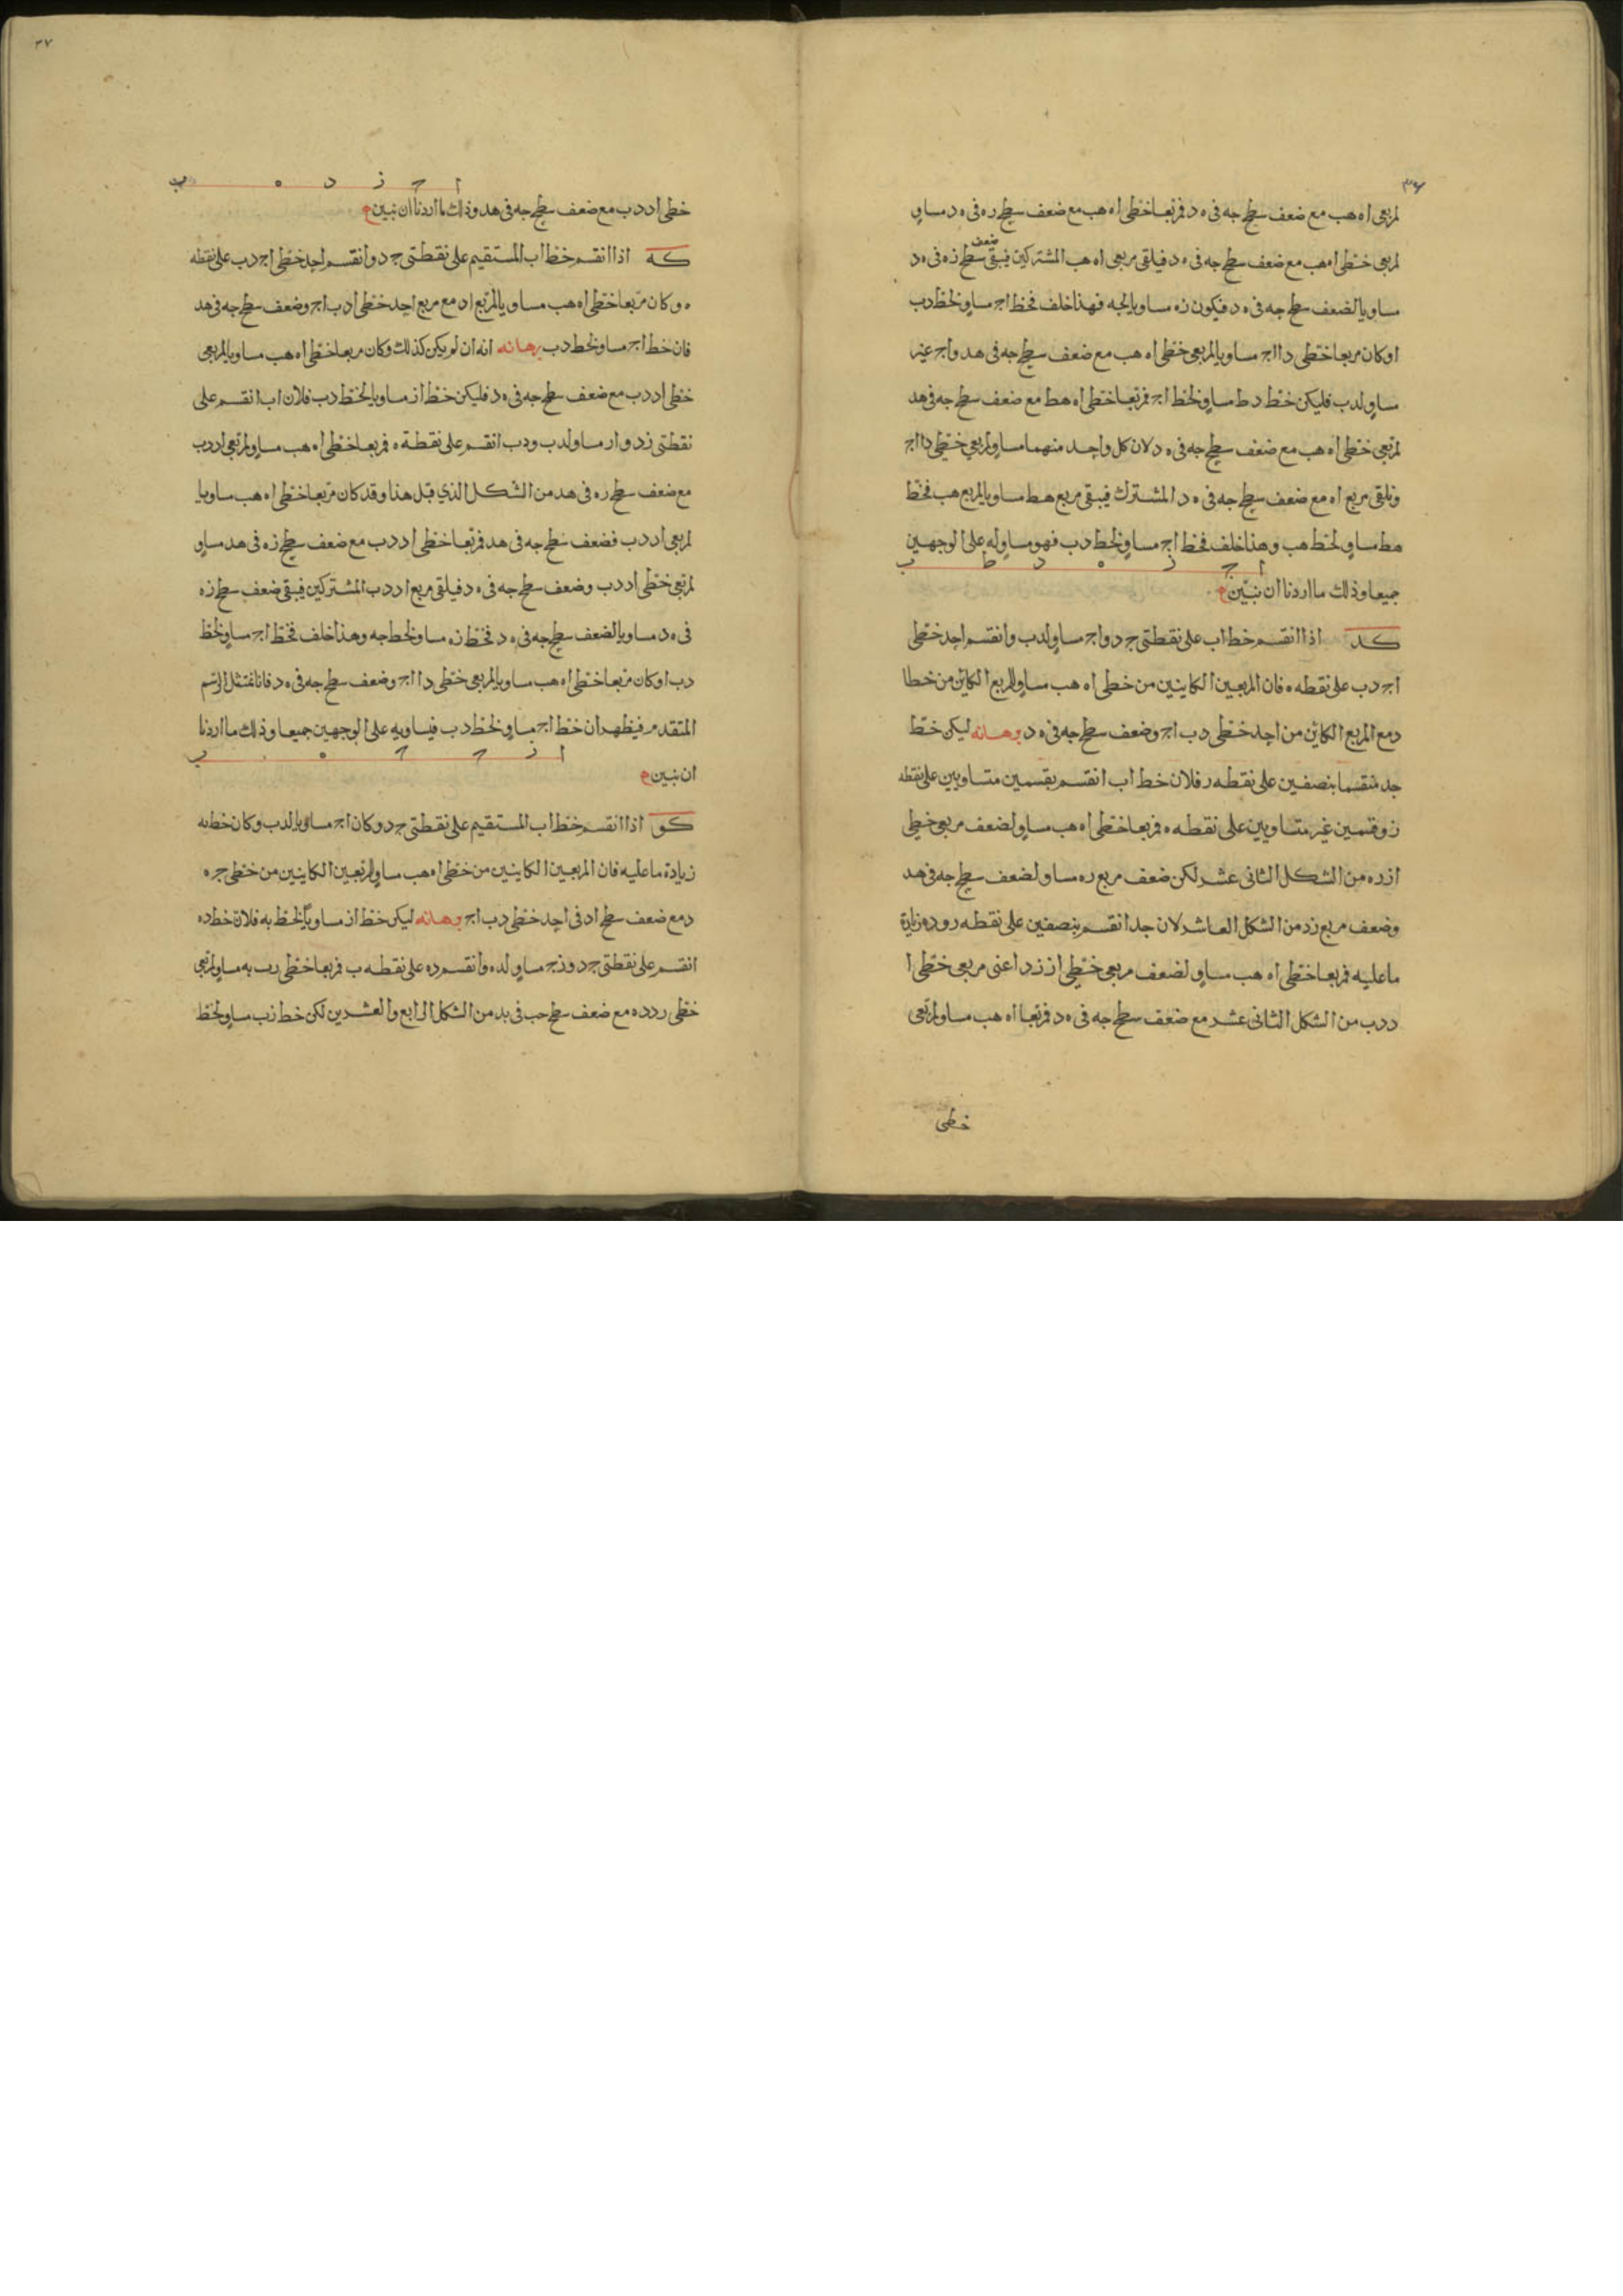 ٣٦
لمربعى اه هب مع ضعف سطح جه فى ه د فمربعا خطى اه هب مع ضعف سطح ره فى ه د مساو
لمربعى خطى اه هب مع ضعف سطح جه فى ه د فيلقى مربعى اه هب المشتركين فيبقى ضعف سطح زه فى ه د
مساويا لضعف سطح جه فى ه د فيكون زه مساويا لجه فهذا خلف فخط اج مساو لخط دب
او كان مربعا خطى دا اج مساويا لمربعى خطى اه هب مع ضعف سطح جه فى هد واج غير
مساو لدب فليكن خط دط مساو لخط اج فمربعا خطى اه هط مع ضعف سطح جه فى هد
لمربعى خطى اه هب مع ضعف سطح جه فى ه د لان كل واحد منهما مساو لمربعى خطى دا اج
ونلقى مربع اه مع ضعف سطح جه فى ه د المشترك فيبقى مربع هط مساويا لمربع هب فخط
هط مساو لخط هب وهذا خلف فخط اج مساو لخط دب فهو مساو له على الوجهين
ا ج ز ه د ط ب
جميعا وذلك ما اردنا ان نبين م
كد اذا انقسم خط اب على نقطتى ج د واج مساو لدب وانقسم احد خطى
اج دب على نقطه ه فان المربعين الكاينين من خطى اه هب مساو للمربع الكاين من خط ا
د مع المربع الكاين من احد خطى دب اج وضعف سطح جه فى ه د برهانه ليكن خط
جد منقسما بنصفين على نقطه ر فلان خط اب انقسم بقسمين متساويين على نقطه
ز وقسمين غير متساويين على نقطه ه فمربعا خطى اه هب مساو لضعف مربعى خطى
از ره من الشكل الثانى عشر لكن ضعف مربع ره مساو لضعف سطح جه فى هد
وضعف مربع زد من الشكل العاشر لان جد انقسم بنصفين على نقطه ر وده زيادة
ما عليه فمربعا خطى اه هب مساو لضعف مربعى خطى از زد اعنى مربعى خطى ا
د دب من الشكل الثانى عشر مع ضعف سطح جه فى ه د فمربعا اه هب مساو لمربعى
خطى
٣٧
ا ج ز د ه ب
خطى اد دب مع ضعف سطح جه فى هد وذلك ما اردنا ان نبين م
كه اذا انقسم خط اب المستقيم على نقطتى ج د وانقسم احد خطى اج دب على نقطه
ه وكان مربعا خطى اه هب مساويا لمربع اد مع مربع احد خطى ادب اج وضعف سطح جه فى هد
فان خط اج مساو لخط دب برهانه انه ان لم يكن كذلك وكان مربعا خطى اه هب مساويا لمربعى
خطى اد دب مع ضعف سطح جه فى ه د فليكن خط از مساويا لخط دب فلان اب انقسم على
نقطتى زد وار مساو لدب ودب انقسم على نقطة ه فمربعا خطى اه هب مساو لمربعى اد دب
مع ضعف سطح ره فى هد من الشكل الذي قبل هذا وقد كان مربعا خطى اه هب مساويا
لمربعى اد دب فضعف سطح جه فى هد فمربعا خطى اد دب مع ضعف سطح زه فى هد مساو
لمربعى خطى اد دب وضعف سطح جه فى ه د فيلقى مربع اد دب المشتركين فيبقى ضعف سطح زه
فى ه د مساويا لضعف سطح جه فى ه د فخط زه مساو لخط جه وهذا خلف فخط اج مساو لخط
دب او كان مربعا خطى اه هب مساويا لمربعى خطى دا اج وضعف سطح جه فى ه د فانا نمتثل الرسم
المتقدم فيظهر ان خط اج مساو لخط دب فيساويه على الوجهين جميعا وذلك ما اردنا
ا ز ج ح ه ب
ان نبين م
كو اذا انقسم خط اب المستقيم على نقطتى ج د وكان اج مساويا لدب وكان خط به
زيادة ما عليه فان المربعين الكاينين من خطى اه هب مساو لمربعين الكاينين من خطى ج ه
د مع ضعف سطح اد فى احد خطى دب اج برهانه ليكن خط از مساويا لخط به فلان خط ده
انقسم على نقطتى ج د وزج مساو لده وانقسم ده على نقطه ب فمربعا خطى رب به مساو لمربعى
خطى رد ده مع ضعف سطح جب فى بد من الشكل الرابع والعشرين لكن خط زب مساو لخط